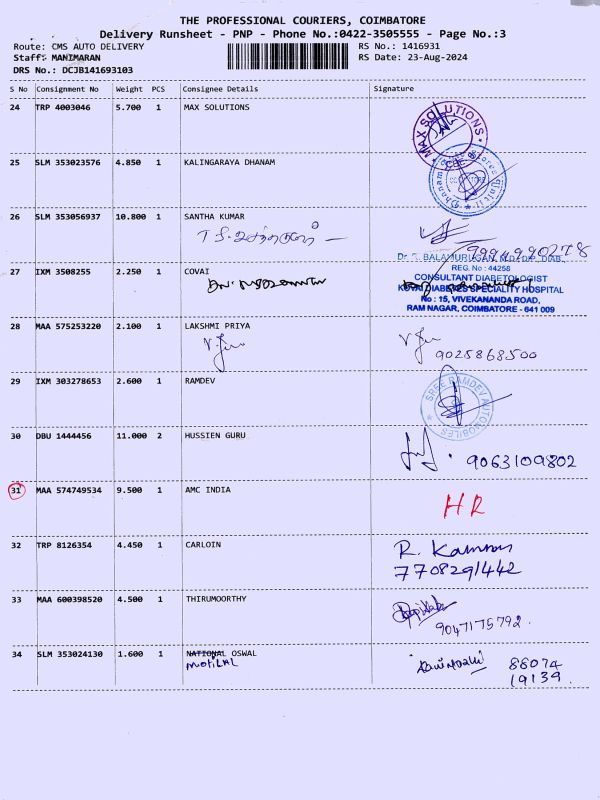 THE PROFESSIONAL COURIERS, COIMBATORE
Delivery Runsheet - PNP - Phone No.:0422-3505555 - Page No.:3
Route: CMS AUTO DELIVERY RS No.: 1416931
Staff: MANIMARAN RS Date: 23-Aug-2024
DRS No.: DCJB141693103
S No Consignment No Weight PCS Consignee Details Signature
24 TRP 4003046 5.700 1 MAX SOLUTIONS
MAX SOLUTIONS
25 SLM 353023576 4.850 1 KALINGARAYA DHANAM
26 SLM 353056937 10.800 1 SANTHA KUMAR
9994990278
Dr. T. BALAMURUGAN, M.D., DIP. DIAB.,
REG. No : 44258
27 IXM 3508255 2.250 1 COVAI
CONSULTANT DIABETOLOGIST
KOVAI DIABETES SPECIALITY HOSPITAL
No : 15, VIVEKANANDA ROAD,
RAM NAGAR, COIMBATORE - 641 009
28 MAA 575253220 2.100 1 LAKSHMI PRIYA
9025868500
29 IXM 303278653 2.600 1 RAMDEV
SREE RAMDEV AUTOMOBILES
30 DBU 1444456 11.000 2 HUSSIEN GURU
9063109802
31 MAA 574749534 9.500 1 AMC INDIA
HR
32 TRP 8126354 4.450 1 CARLOIN
R. Kannan
7708291442
33 MAA 600398520 4.500 1 THIRUMOORTHY
9047175792.
34 SLM 353024130 1.600 1 NATIONAL OSWAL
MOTILAL
88074
19139.